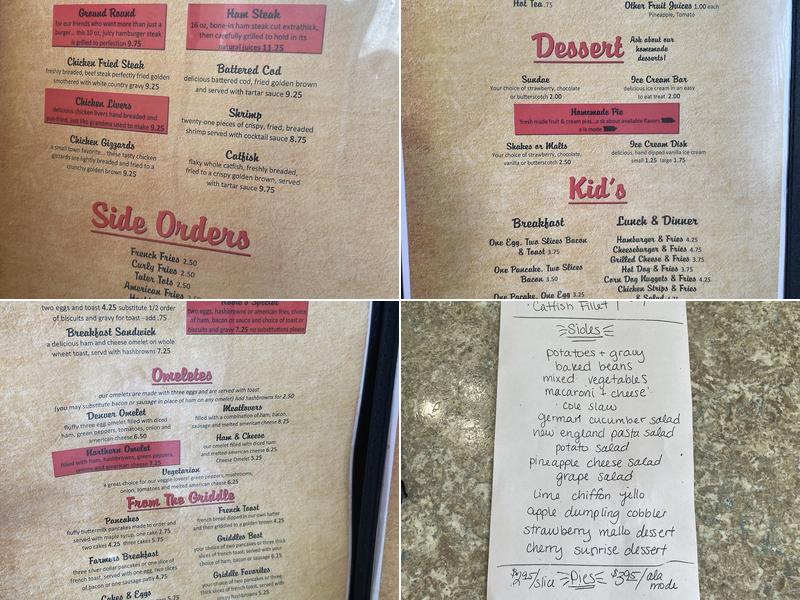 Ground Round
for our friends who want more than just a
burger... this 10 oz, juicy hamburger steak
is grilled to perfection 9.75
Chicken Fried Steak
freshly breaded, beef steak perfectly fried golden
smothered with white country gravy 9.25
Chicken Livers
delicious chicken livers hand breaded and
pan-fried, just like grandma used to make 9.25
Chicken Gizzards
a small town favorite... these tasty chicken
gizzards are lightly breaded and fried to a
crunchy golden brown 9.25
Ham Steak
16 oz, bone-in ham steak cut extrathick,
then carefully grilled to hold in its
natural juices 11.25
Battered Cod
delicious battered cod, fried golden brown
and served with tartar sauce 9.25
Shrimp
twenty-one pieces of crispy, fried, breaded
shrimp served with cocktail sauce 8.75
Catfish
flaky whole catfish, freshly breaded,
fried to a crispy golden brown, served
with tartar sauce 9.75
Side Orders
French Fries 2.50
Curly Fries 2.50
Tater Tots 2.50
American Fries
Hot Tea .75
Other Fruit Juices 1.00 each
Pineapple, Tomato
Dessert
Ask about our
homemade
desserts!
Sundae
Your choice of strawberry, chocolate
or butterscotch 2.00
Ice Cream Bar
delicious ice cream in an easy
to eat treat 2.00
Homemade Pie
fresh made fruit & cream pies...a sk about available flavors
a la mode
Shakes or Malts
Your choice of strawberry, chocolate,
vanilla or butterscotch 2.50
Ice Cream Dish
delicious, hand dipped vanilla ice cream
small 1.25 large 1.75
Kid's
Breakfast
One Egg, Two Slices Bacon
& Toast 3.75
One Pancake, Two Slices
Bacon 3.50
One Pacake, One Egg 3.25
Lunch & Dinner
Hamburger & Fries 4.25
Cheeseburger & Fries 4.75
Grilled Cheese & Fries 3.75
Hot Dog & Fries 3.75
Corn Dog Nuggets & Fries 4.25
Chicken Strips & Fries
two eggs and toast 4.25 substitute 1/2 order
of biscuits and gravy for toast - add .75
Breakfast Sandwich
a delicious ham and cheese omelet on whole
wheet toast, servd with hashbrowns 7.25
Special
two eggs, hashbrowns or american fries, choice
of ham, bacon or sauce and choice of toast or
biscuits and gravy 7.25 no substitutions please
Omeletes
our omeletes are made with three eggs and are served with toast
(you may substitute bacon or sausage in place of ham on any omelete) Add hashbrowns for 2.50
Denver Omelet
fluffy three egg omelet filled with diced
ham, green peppers, tomatoes, onion and
american cheese 6.50
Meatlovers
filled with a combination of ham, bacon,
sausage and melted american cheese 8.25
Northern Omelet
filled with ham, hashbrowns, green peppers,
onions and american cheese 7.25
Ham & Cheese
our omelet filled with diced ham
and melted american cheese 6.25
Cheese Omelet 5.25
Vegetarian
a great choice for our veggie lovers! green peppers, mushrooms,
onion, tomatoes and melted american cheese 6.25
From The Griddle
Pancakes
fluffy buttermilk pancakes made to order and
served with maple syrup. one cake 2.75
two cakes 4.25 three cakes 5.75
Farmers Breakfast
three silver dollar pancakes or one slice of
french toast, served with one egg, two slices
of bacon or one sausage patty 4.75
Cakes & Eggs
French Toast
french bread dipped in our own batter
and then griddled to a golden brown 4.25
Griddles Best
your choice of two pancakes or three thick
slices of french toast, served with your
choice of ham, bacon or sausage 6.25
Griddle Favorites
your choice of two pancakes or three
thick slices of french toast, served
Catfish Fillet
Sides
potatoes + gravy
baked beans
mixed vegetables
macaroni + cheese
cole slaw
german cucumber salad
new england pasta salad
potato salad
pineapple cheese salad
grape salad
lime chiffon jello
apple dumpling cobbler
strawberry mallo dessert
cherry surprise dessert
$2.95/slice Pies $3.95/ala
mode